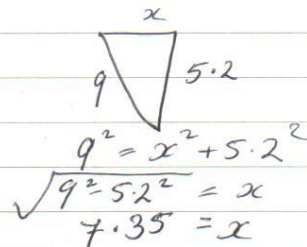 x
9 5·2
9² = x² + 5·2²
√(9² - 5·2²) = x
7·35 = x